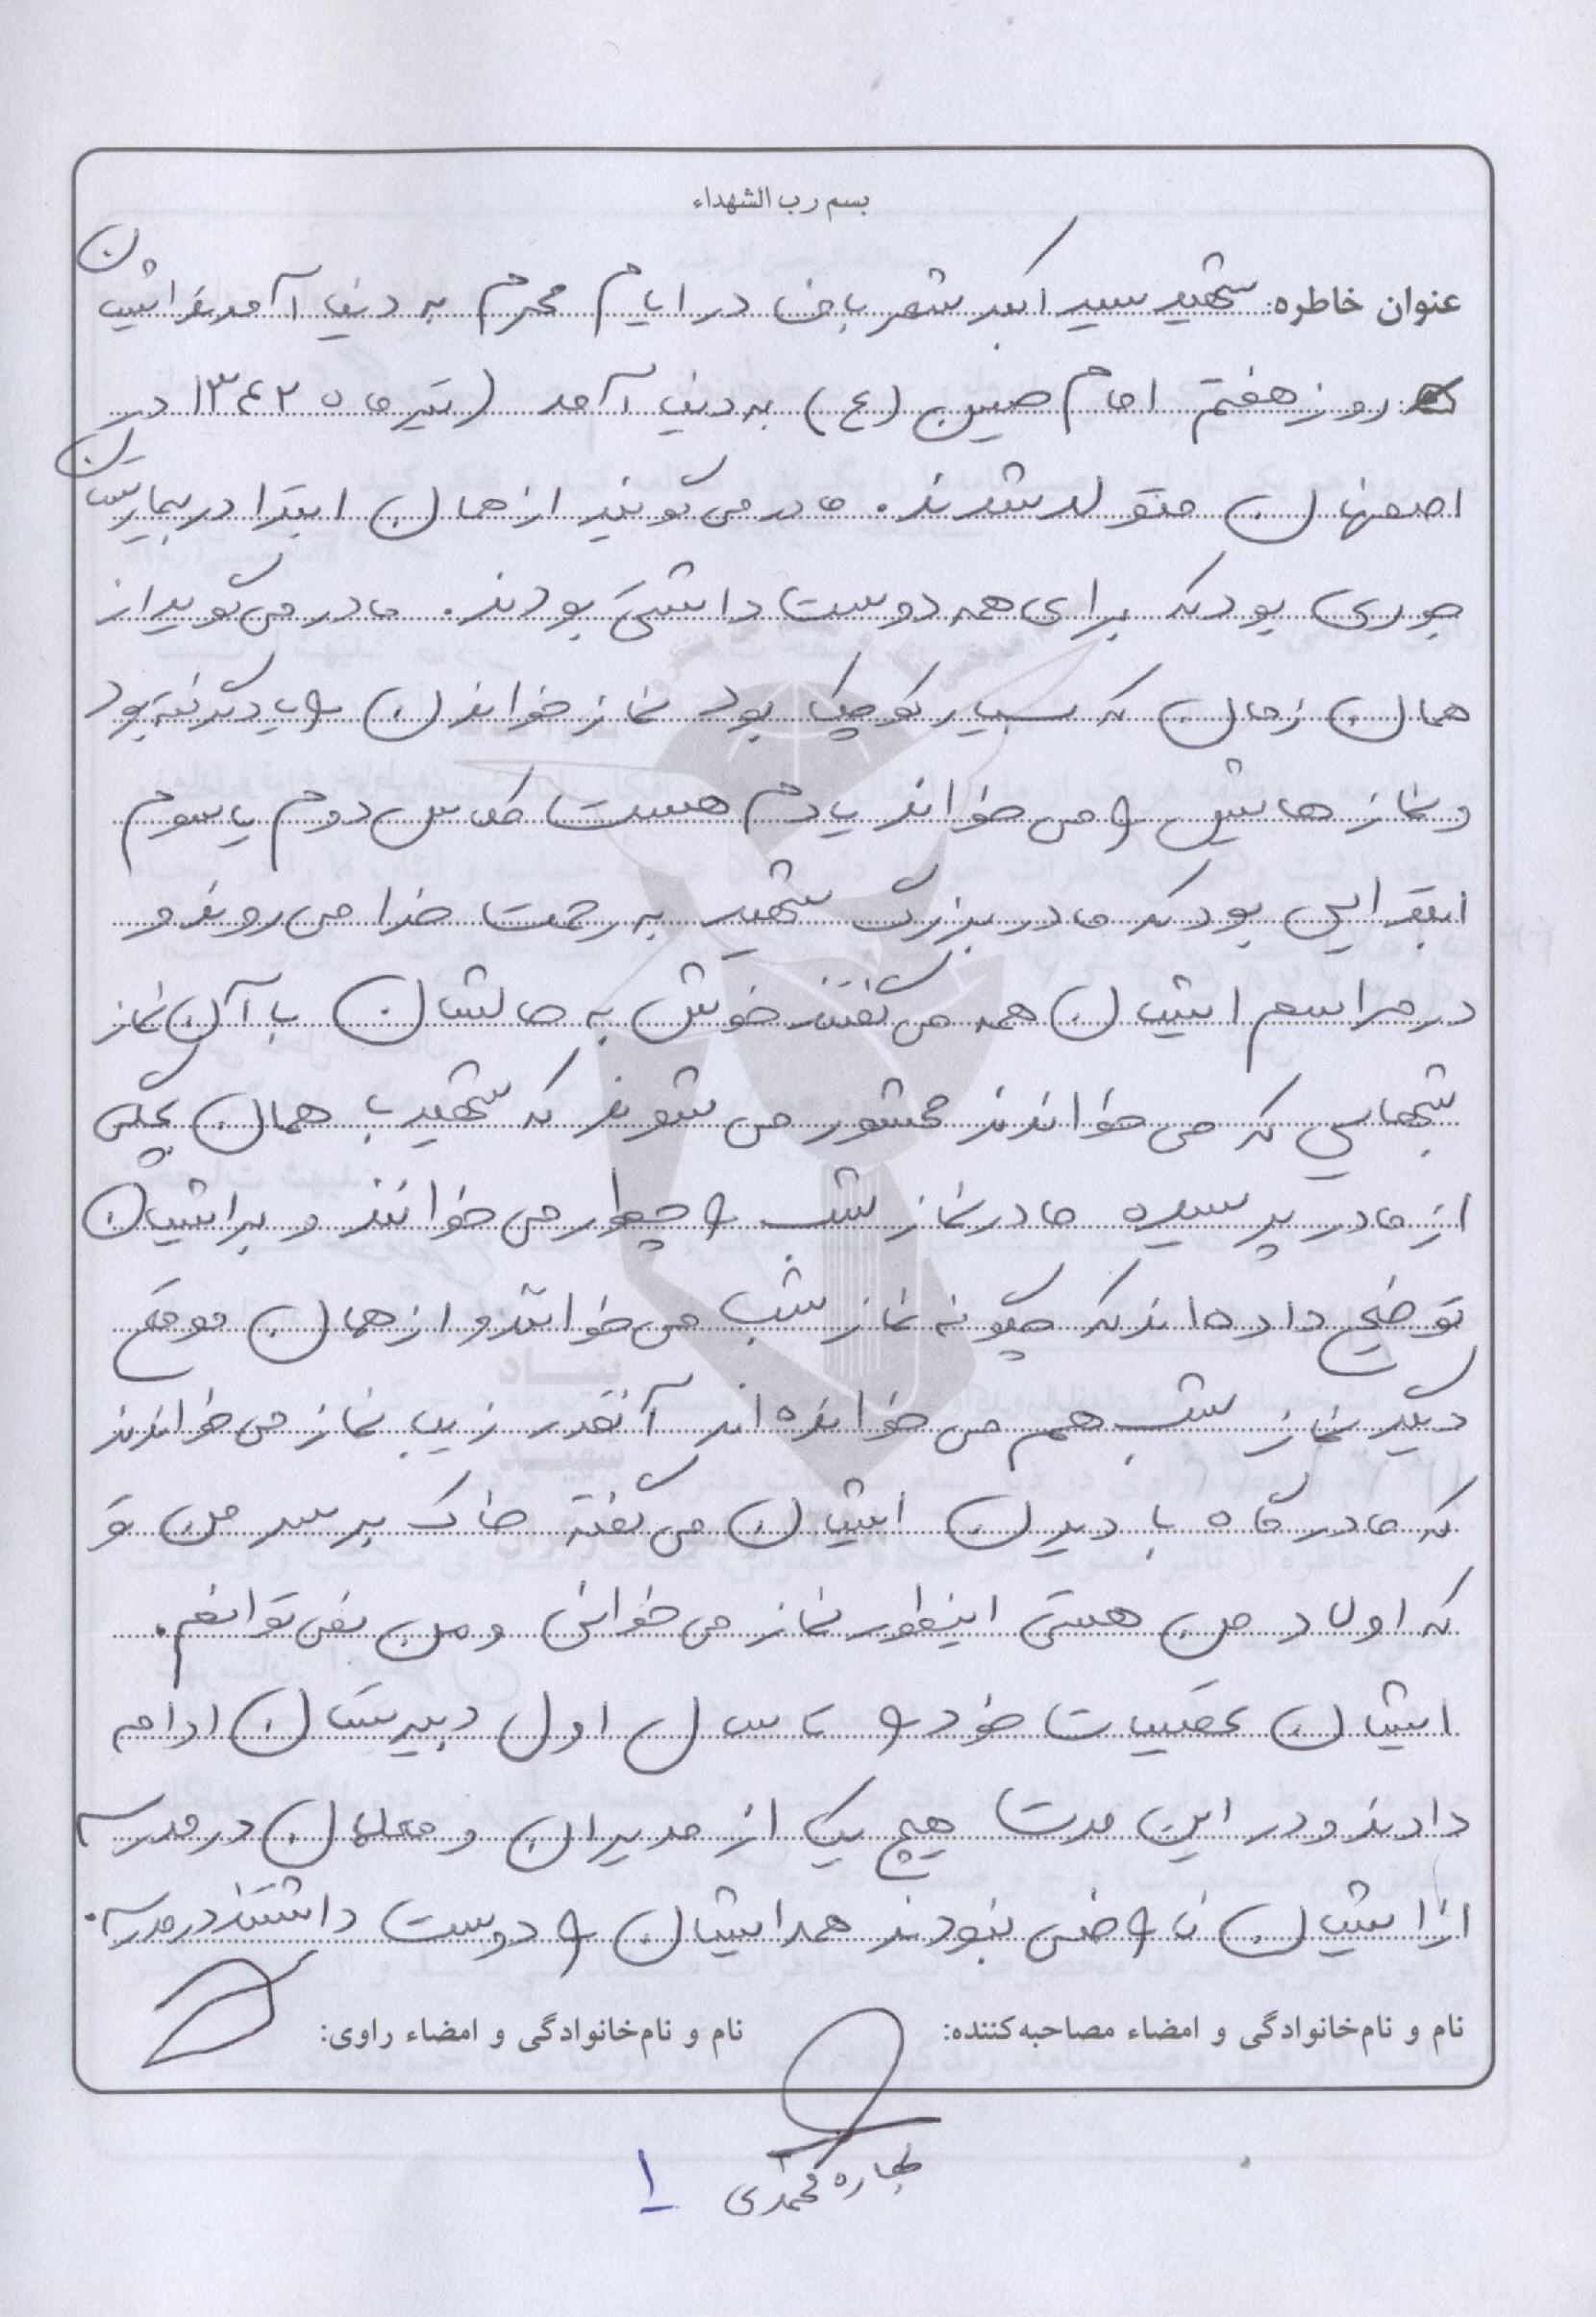 بسم رب الشهداء
عنوان خاطره: شهید سید اکبر شهرباف در ایام محرم به دنیا آمدند ایشان
روز هفتم امام حسین (ع) به دنیا آمد (تیر ماه ۱۳۴۲ در
اصفهان متولد شدند. مادر می گویند از همان ابتدا در بیمارستان
جوری بود که برای همه دوست داشتنی بودند. مادر می گوید از
همان زمان که بسیار کوچک بود نماز خواندن را یاد گرفته بود
و نماز هایش را می خواند یادم هست کلاس دوم یا سوم
ابتدایی بود که مادر بزرگ شهید به رحمت خدا می روند و
در مراسم ایشان همه می گفتند خوش به حالشان با آن نماز
شبهایی که می خواندند محشور می شوند که شهید با همان بچگی
از مادر پرسیده مادر نماز شب را چطور می خوانند و برایشان
توضیح داده اند که چگونه نماز شب می خوانند و از همان موقع
دیگر نماز شب هم می خوانده اند آنقدر زیبا نماز می خواندند
که مادر گاه با دیدن ایشان می گفته خاک بر سر من تو
که اولاد من هستی اینطور نماز می خوانی و من نمی توانم.
ایشان تحصیلات خود را تا سال اول دبیرستان ادامه
دادند و در این مدت هیچ یک از مدیران و معلمان در مدرسه
از ایشان ناراضی نبودند همه ایشان را دوست داشتند در مدرسه.
نام و نام‌خانوادگی و امضاء مصاحبه‌کننده: نام و نام‌خانوادگی و امضاء راوی:
بهاره محمدی ۱